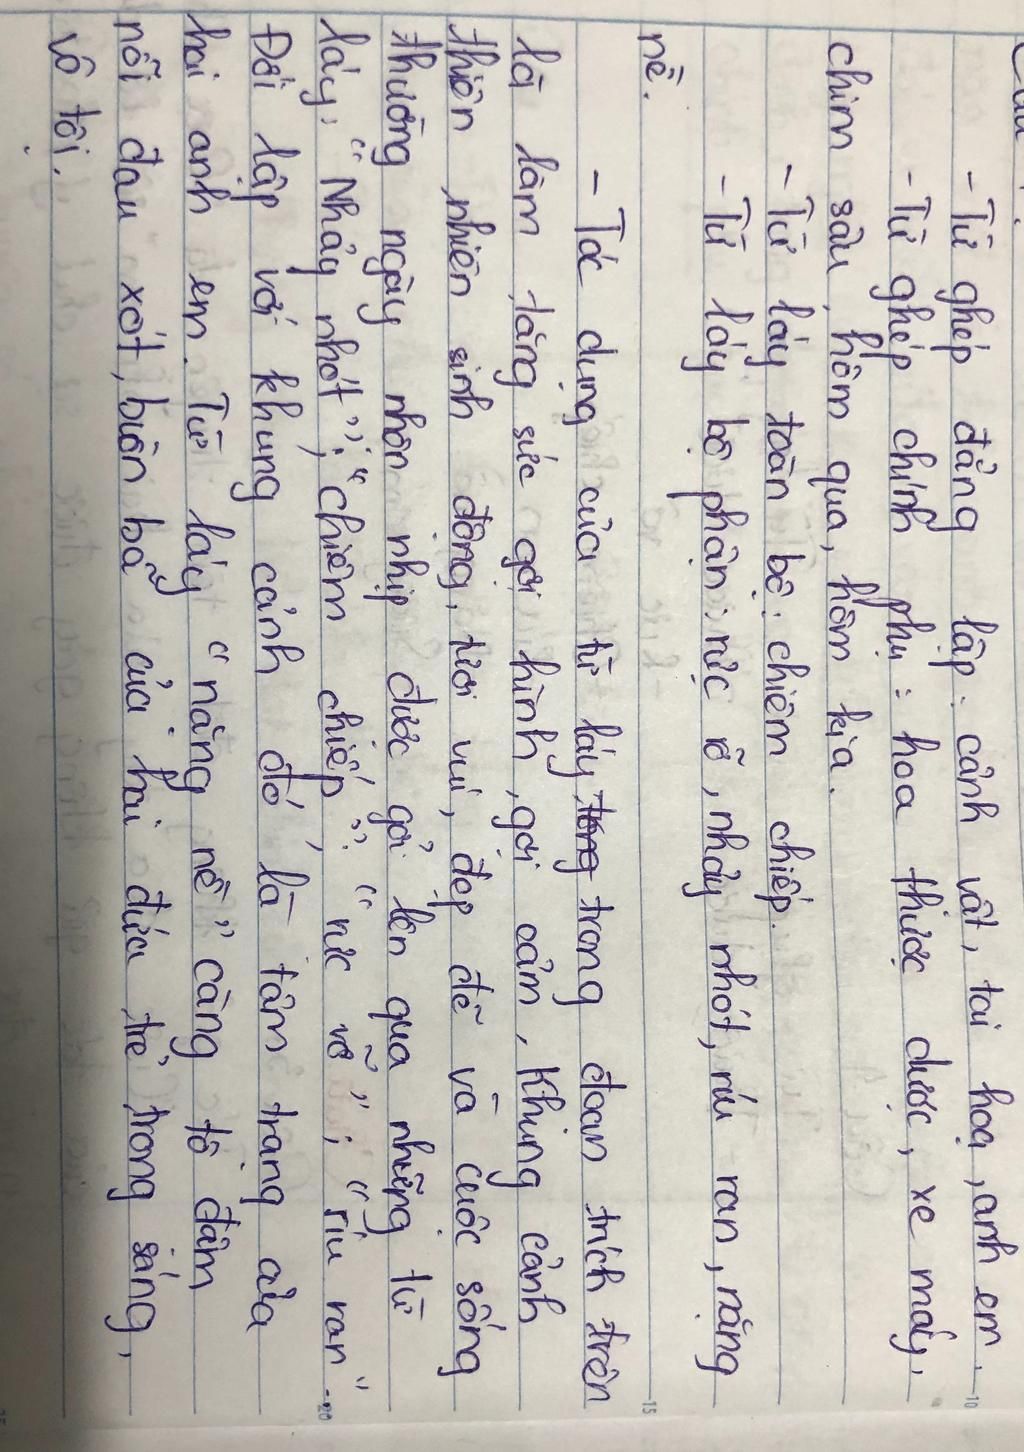 - Từ ghép đẳng lập: cảnh vật, tai hoạ, anh em.
- Từ ghép chính phụ: hoa thược dược, xe máy,
chim sâu, hôm qua, hôm kia.
- Từ láy toàn bộ: chiêm chiếp.
- Từ láy bộ phận: rực rỡ, nhảy nhót, ríu ran, nặng
nề.
- Tác dụng của từ láy trong đoạn trích trên
là làm tăng sức gợi hình, gợi cảm, khung cảnh
thiên nhiên sinh động, tươi vui, đẹp đẽ và cuộc sống
thường ngày nhộn nhịp được gởi lên qua những từ
láy: "Nhảy nhót"; "chiêm chiếp"; "rực rỡ"; "ríu ran".
Đối lập với khung cảnh đó, là tâm trạng của
hai anh em. Từ láy "nặng nề" càng tô đậm
nỗi đau xót, buồn bã của hai đứa trẻ trong sáng,
vô tội.